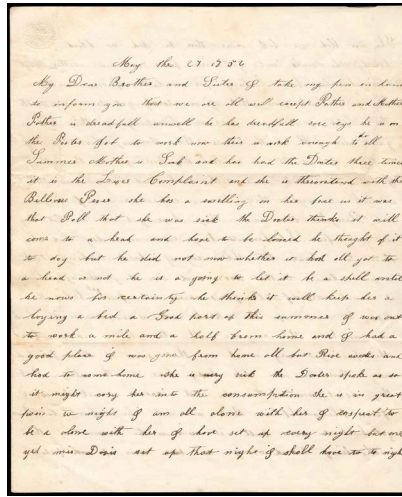 May the 27 1856
My Dear Brother and Sister I take my pen in hand
to inform you that we are all well except Father and Mother
Father is dreadfall unwell he has dreadfull sore eye he won
the Pister fit to work now their is work enough to do all
Summer Mother is Sick and has had the Docter three times
it is the Liver Complaint and she is threontend with the
Billious Fever she has a swelling in her face as it was
that Fall that she was sick the Docter thinks it will
come to a head and have to be lanced he thought of it
to day but he did not now whether it had all got to
a head or not he is a going to let it be a spell until
he nows for certainty he thinks it will keep her a
loying a bed a Good part of this summer I was out
to work a mile and a half from home and I had a
good place I was gone from home all but five weeks and
had to come home she is very sick the Docter spoke as so
it might cary her into the consumption she is in great
pain to night I am all alone with her I expect to
be a alone with her I have set up every night but one
yet miss Davis set up that night I shall have to to nigh